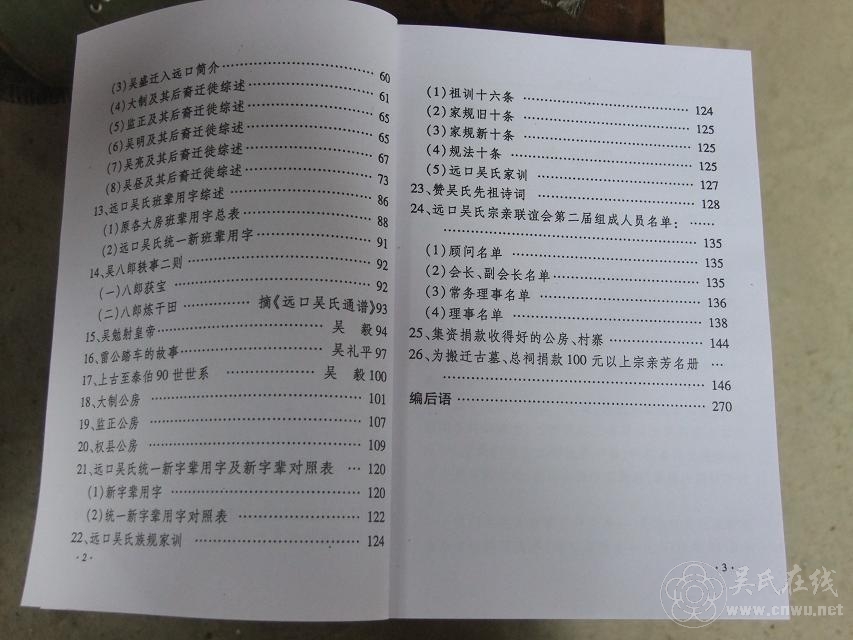 (3)吴盛迁入远口简介……60
(4)大制及其后裔迁徙综述……61
(5)监正及其后裔迁徙综述……65
(6)吴明及其后裔迁徙综述……65
(7)吴亮及其后裔迁徙综述……67
(8)吴昼及其后裔迁徙综述……73
13、远口吴氏班辈用字综述……86
(1)原各大房班辈用字总表……88
(2)远口吴氏统一新班辈用字……91
14、吴八郎轶事二则……92
(一)八郎获宝……92
(二)八郎炼干田……摘《远口吴氏通谱》93
15、吴勉射皇帝……吴 毅94
16、雷公踏车的故事……吴礼平97
17、上古至泰伯90世世系……吴 毅100
18、大制公房……101
19、监正公房……107
20、权县公房……109
21、远口吴氏统一新字辈用字及新字辈对照表…120
(1)新字辈用字……120
(2)统一新字辈用字对照表……122
22、远口吴氏族规家训……124
·2·
(1)祖训十六条……124
(2)家规旧十条……125
(3)家规新十条……125
(4)规法十条……125
(5)远口吴氏家训……127
23、赞吴氏先祖诗词……128
24、远口吴氏宗亲联谊会第二届组成人员名单:……
……135
(1)顾问名单……135
(2)会长、副会长名单……135
(3)常务理事名单……136
(4)理事名单……138
25、集资捐款收得好的公房、村寨……144
26、为搬迁古墓、总祠捐款100元以上宗亲芳名册…
……146
编后语……270
·3·
吴氏在线
www.cnwu.net